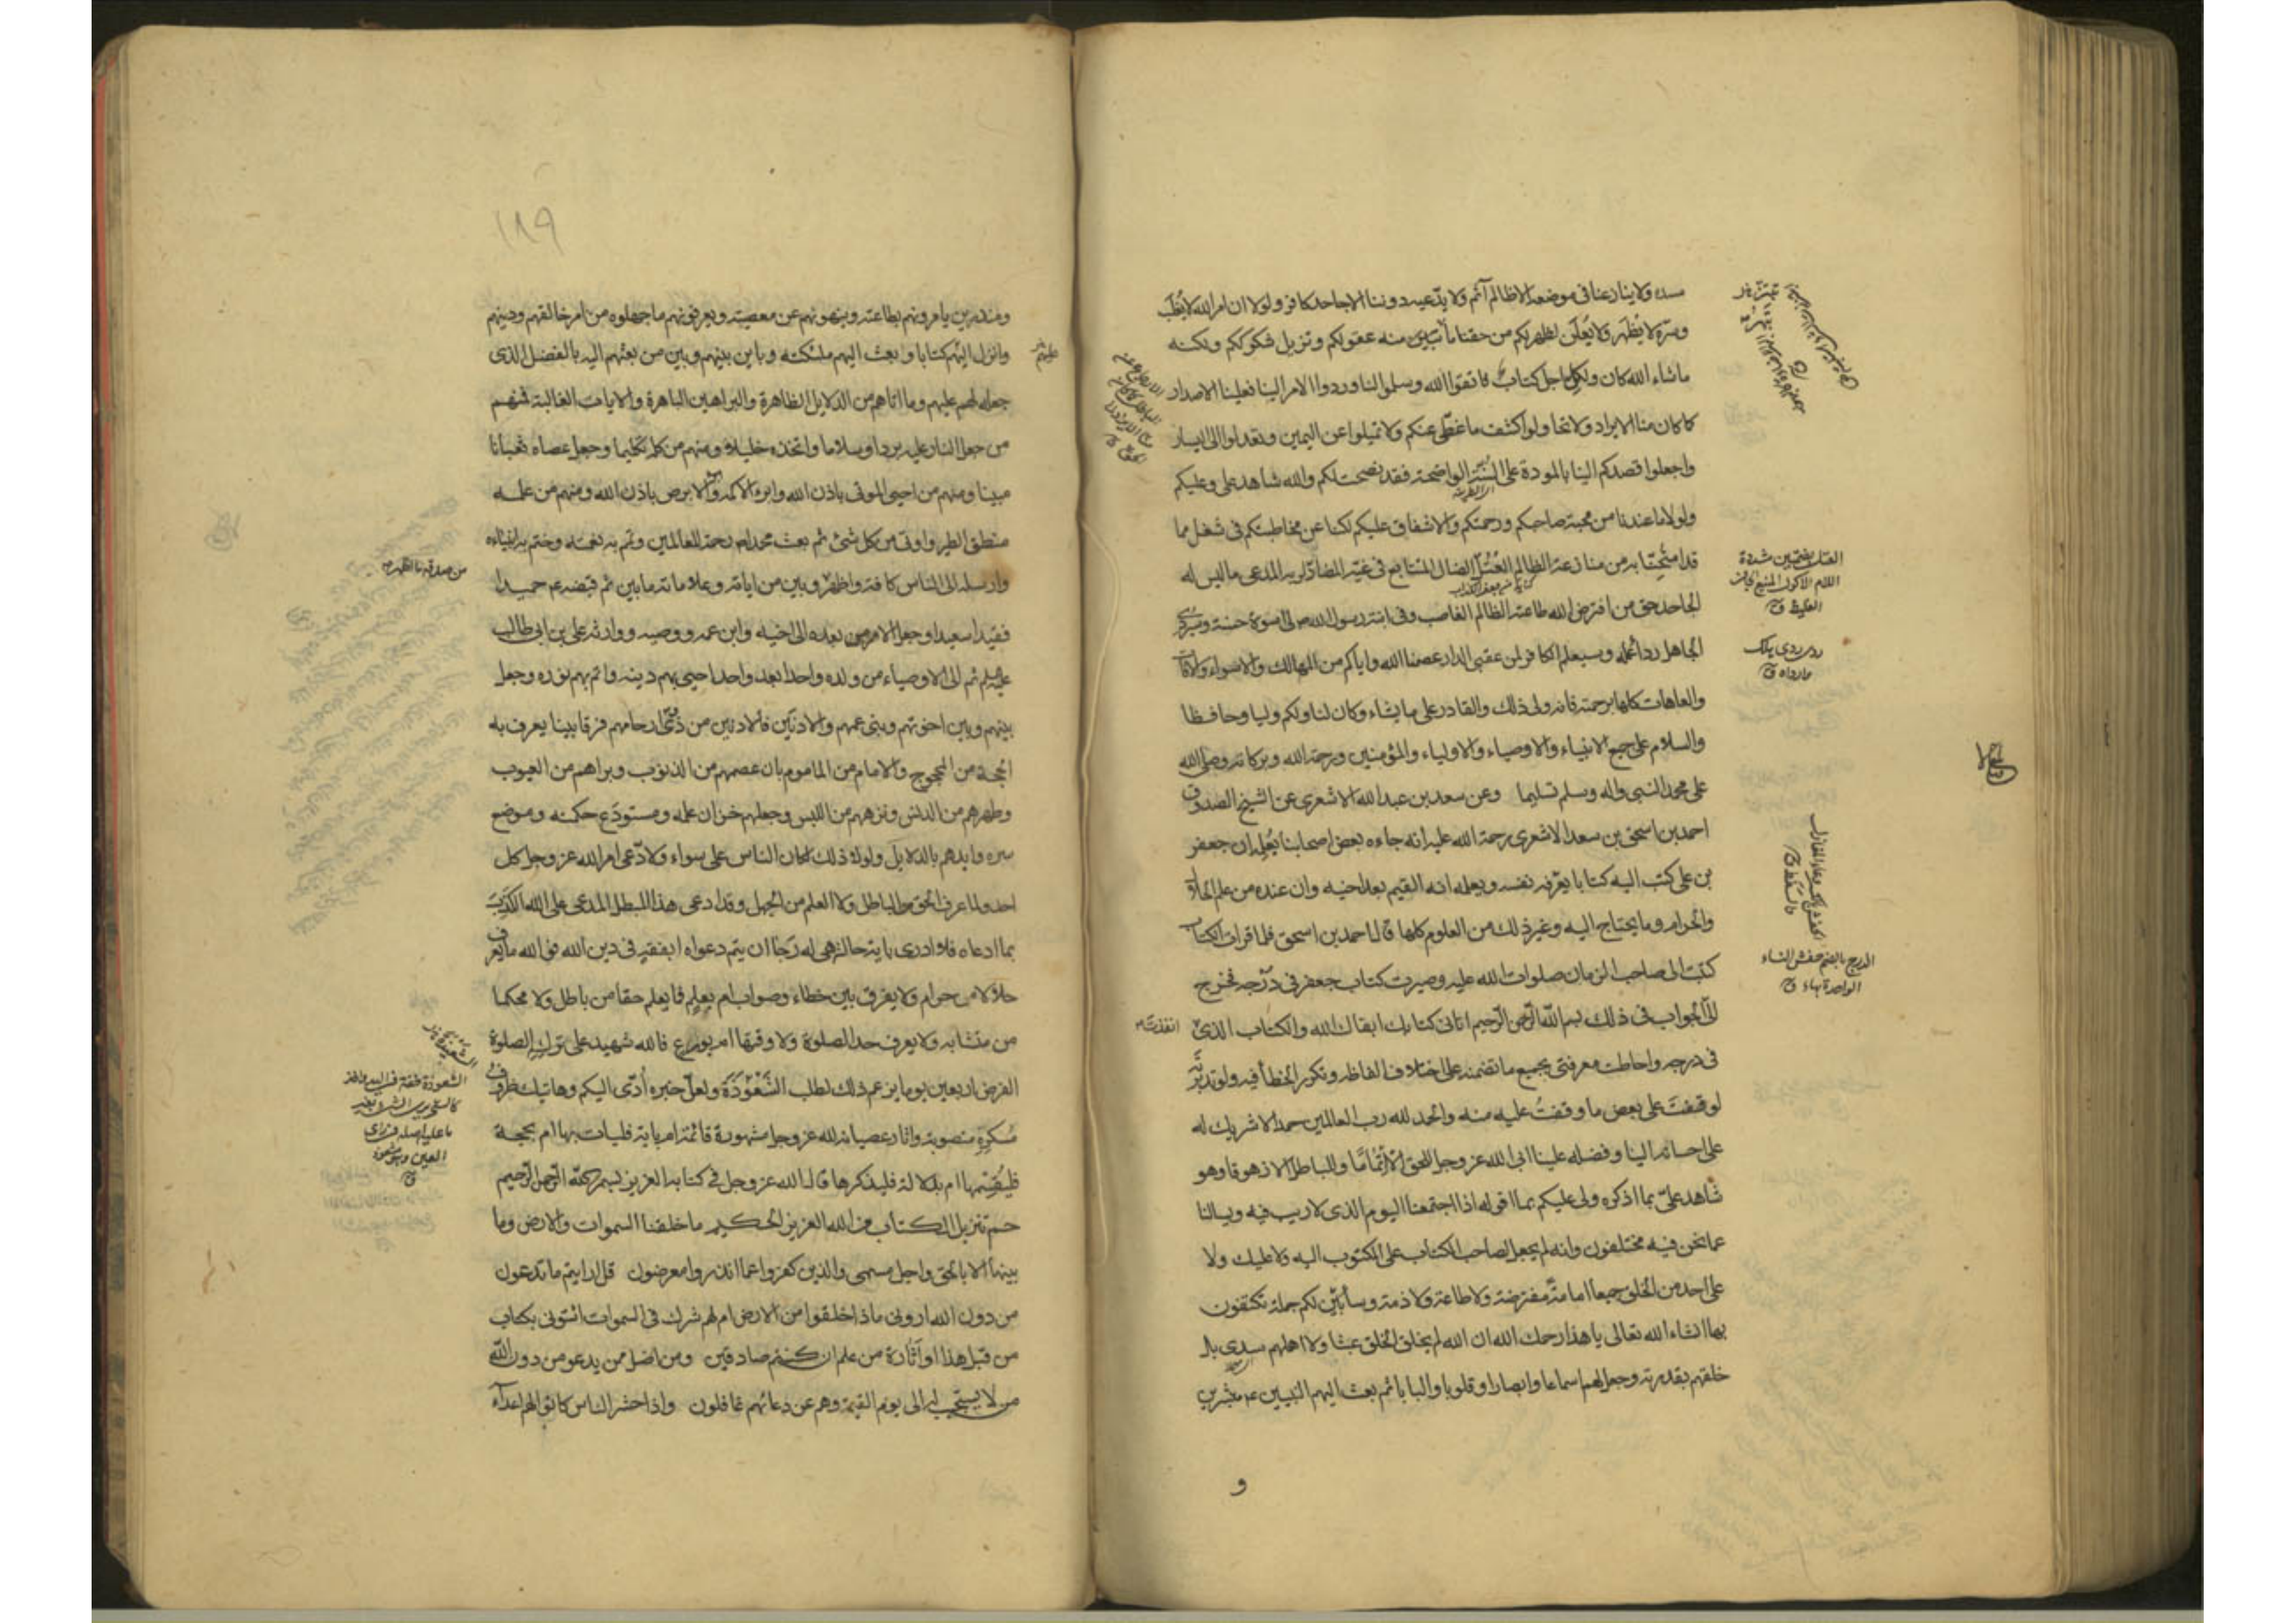 سده ولا ينازعنا في موضعه الا ظالم آثم ولا يدّعيه دوننا الا جاحد كافر ولولا ان امر الله لا يُغلَب
وسرّه لا يُظهَر ولا يُعلَن لظهر لكم من حقنا ما تبيّن منه عقولكم وتزيل شكوككم ولكنه
ما شاء الله كان ولكل اجل كتاب فاتقوا الله وسلموا لنا وردوا الامر الينا فعلينا الاصدار
كما كان منا الايراد ولا تحاولوا كشف ما غُطّي عنكم ولا تميلوا عن اليمين وتعدلوا الى اليسار
واجعلوا قصدكم الينا بالمودة على السُنّة الواضحة فقد نصحت لكم والله شاهد علي وعليكم
ولولا ما عندنا من محبة صاحبكم ورحمتكم والاشفاق عليكم لكنا عن مخاطبتكم في شغل مما
قد امتُحِنّا به من منازعة الظالم العُتُلّ الضال المتتابع في غيّه المضادّ لربه المدعي ما ليس له
الجاحد حق من افترض الله طاعته الظالم الغاصب وفي ابنة رسول الله ص لي اسوة حسنة وسيُردي
الجاهل رداءُ عمله وسيعلم الكافر لمن عقبى الدار عصمنا الله واياكم من المهالك والاسواء والافات
والعاهات كلها برحمته فانه ولي ذلك والقادر على ما يشاء وكان لنا ولكم وليا وحافظا
والسلام على جميع الانبياء والاوصياء والاولياء والمؤمنين ورحمة الله وبركاته وصلى الله
على محمد النبي واله وسلم تسليما وعن سعد بن عبد الله الاشعري عن الشيخ الصدوق
احمد بن اسحق بن سعد الاشعري رحمة الله عليه انه جاءه بعض اصحابنا يُعلِمه ان جعفر
بن علي كتب اليه كتابا يعرّفه نفسه ويعلمه انه القيم بعد اخيه وان عنده من علم الحلال
والحرام وما يحتاج اليه وغير ذلك من العلوم كلها قال احمد بن اسحق فلما قرات الكتاب
كتبت الى صاحب الزمان صلوات الله عليه وصيرت كتاب جعفر في دَرْجه فخرج
اليّ الجواب في ذلك بسم الله الرحمن الرحيم اتاني كتابك ابقاك الله والكتاب الذي انفذتَه
في درجه واحاطت معرفتي بجميع ما تضمنه على اختلاف الفاظه وتكرر الخطأ فيه ولو تدبّرتَه
لوقفتَ على بعض ما وقفتُ عليه منه والحمد لله رب العالمين حمدا لا شريك له
على احسانه الينا وفضله علينا ابى الله عز وجل للحق الا اتمامًا وللباطل الا زهوقا وهو
شاهد عليّ بما اذكره ولي عليكم بما اقوله اذا اجتمعنا اليوم الذي لا ريب فيه ويسالنا
عما نحن فيه مختلفون وانه لم يجعل لصاحب الكتاب على المكتوب اليه ولا عليك ولا
على احد من الخلق جميعا امامةً مفترضة ولا طاعة ولا ذمة وسأبيّن لكم جملة تكتفون
بها انشاء الله تعالى يا هذا رحمك الله ان الله لم يخلق الخلق عبثا ولا اهملهم سدى بل
خلقهم بقدرته وجعل لهم اسماعا وابصارا وقلوبا والبابا ثم بعث اليهم النبيين ع مبشرين
و
العتل بضمتين مشددة
اللام الاكول المنيع
الغليظ ق
الدرج بالضم حفش النساء
الواحدة بهاء ق
١٨٩
ومنذرين يامرونهم بطاعته وينهونهم عن معصيته ويعرفونهم ما جهلوه من امر خالقهم ودينهم
وانزل اليهم كتابا وبعث اليهم ملئكته وباين بينهم وبين من بعثهم اليه بالفضل الذي
جعله لهم عليهم وما اتاهم من الدلايل الظاهرة والبراهين الباهرة والايات الغالبة فمنهم
من جعل النار عليه بردا وسلاما واتخذه خليلا ومنهم من كلمه تكليما وجعل عصاه ثعبانا
مبينا ومنهم من احيى الموتى باذن الله وابرء الاكمه والابرص باذن الله ومنهم من علمه
منطق الطير واوتي من كل شئ ثم بعث محمدا ص رحمة للعالمين وتمم به نعمته وختم به انبياءه
وارسله الى الناس كافة واظهر وبين من اياته وعلاماته ما بين ثم قبضه ع حميدا
فقيدا سعيدا وجعل الامر من بعده الى اخيه وابن عمه ووصيه ووارثه علي بن ابي طالب
عليه السلم ثم الى الاوصياء من ولده واحدا بعد واحد احيى بهم دينه واتم بهم نوره وجعل
بينهم وبين اخوتهم وبني عمهم والادنَيْن فالادنين من ذوي ارحامهم فرقا بينا يعرف به
الحجة من المحجوج والامام من الماموم بان عصمهم من الذنوب وبراهم من العيوب
وطهرهم من الدنس ونزههم من اللبس وجعلهم خزان علمه ومستودَع حكمه وموضع
سره وايدهم بالدلايل ولولا ذلك لكان الناس على سواء ولادّعى امر الله عز وجل كل
احد ولما عرف الحق من الباطل ولا العلم من الجهل وقد ادعى هذا المبطل المدعي على الله الكذب
بما ادعاه فلا ادري باية حالة هي له رَجَا ان يتم دعواه ابفقه في دين الله فوالله ما يعرف
حلالا من حرام ولا يفرق بين خطاء وصواب ام بعِلمٍ فما يعلم حقا من باطل ولا محكما
من متشابه ولا يعرف حد الصلوة ولا وقتها ام بورع فالله شهيد على تركه الصلوة
الفرض اربعين يوما يزعم ذلك لطلب الشَعْوَذَة ولعلّ خبره اُدّى اليكم وهاتيك ظروف
مُسكِرِه منصوبة واثار عصيانه لله عز وجل مشهورة قائمة ام باية فليات بها ام بحجة
فليُقِمها ام بدلالة فليذكرها قال الله عز وجل في كتابه العزيز بسم الله الرحمن الرحيم
حم تنزيل الكتاب من الله العزيز الحكيم ما خلقنا السموات والارض وما
بينهما الا بالحق واجل مسمى والذين كفروا عما انذروا معرضون قل ارايتم ما تدعون
من دون الله اروني ماذا خلقوا من الارض ام لهم شرك في السموات ائتوني بكتاب
من قبل هذا او اثارة من علم ان كنتم صادقين ومن اضل ممن يدعو من دون الله
من لا يستجيب له الى يوم القيمة وهم عن دعائهم غافلون واذا حشر الناس كانوا لهم اعداء
من صدقه ما اظهر